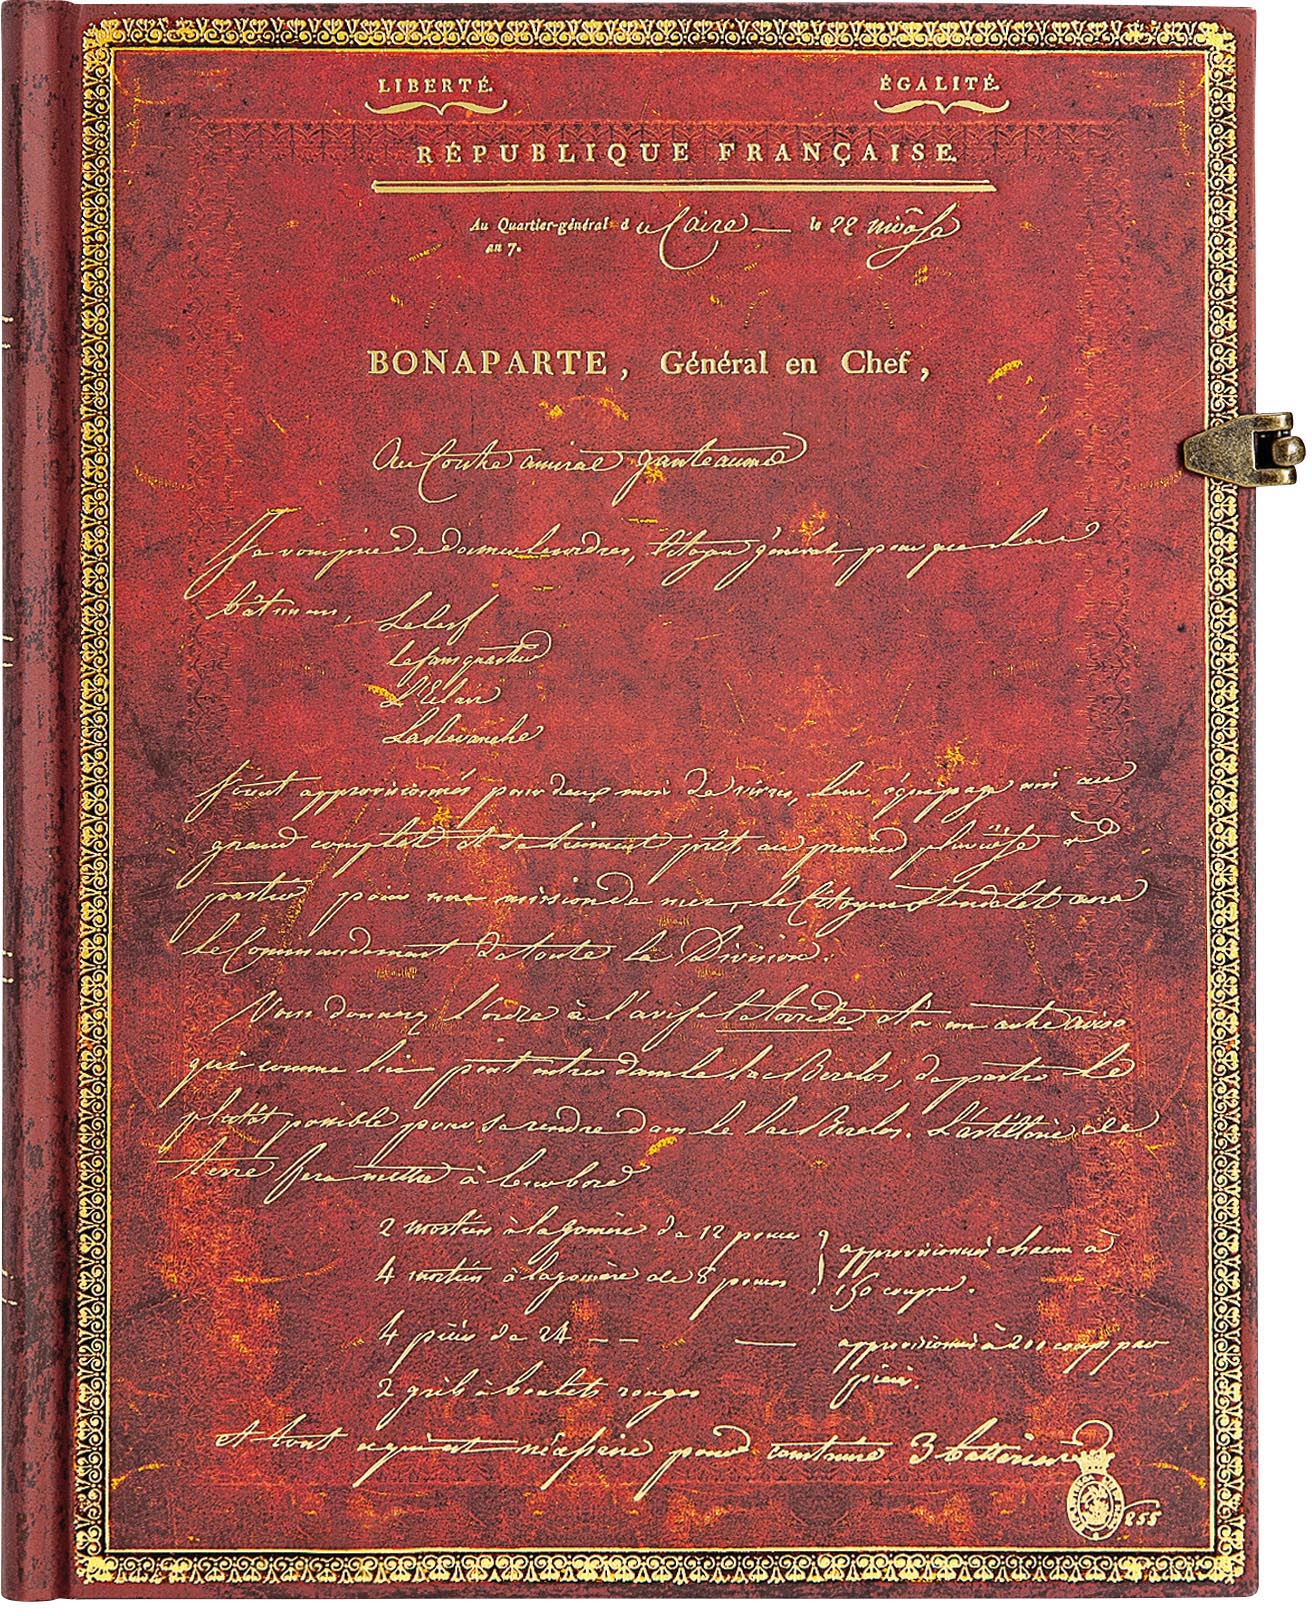 LIBERTÉ. ÉGALITÉ.
RÉPUBLIQUE FRANÇAISE.
Au Quartier-général du Caire — le 22 nivôse
an 7.
BONAPARTE, Général en Chef,
Au Contre amiral Ganteaume
Je vous prie de donner les ordres, Citoyen général, pour que les
bâtimens,
Le Cerf
Le Sans quartier
L'Eclair
La Revanche
soient approvisionnés pour deux mois de vivres, leur équipage mis au
grand complet et tiennent prêts au premier pluviôse à
partir pour une mission de mer, le Citoyen Stendelet aura
le Commandement de toute la Division.
Vous donnerez l'ordre à l'aviso la torride et à un autre aviso
qui comme lui peut entrer dans le lac Berelos, de partir le
plutôt possible pour se rendre dans le lac Berelos. L'artillerie de
terre fera mettre à leur bord
2 mortiers à la gomère de 12 pouces
4 mortiers à la gomère de 8 pouces
approvisionnés chacun à
150 coups.
4 pièces de 24 — — — approvisionnés à 200 coups par
pièces.
2 grils à boulets rouges
et tout ce qui est nécessaire pour construire 3 batteries
255